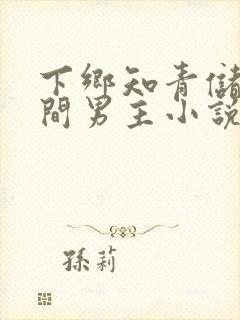 下鄉知青儲
間男主小說
孫莉